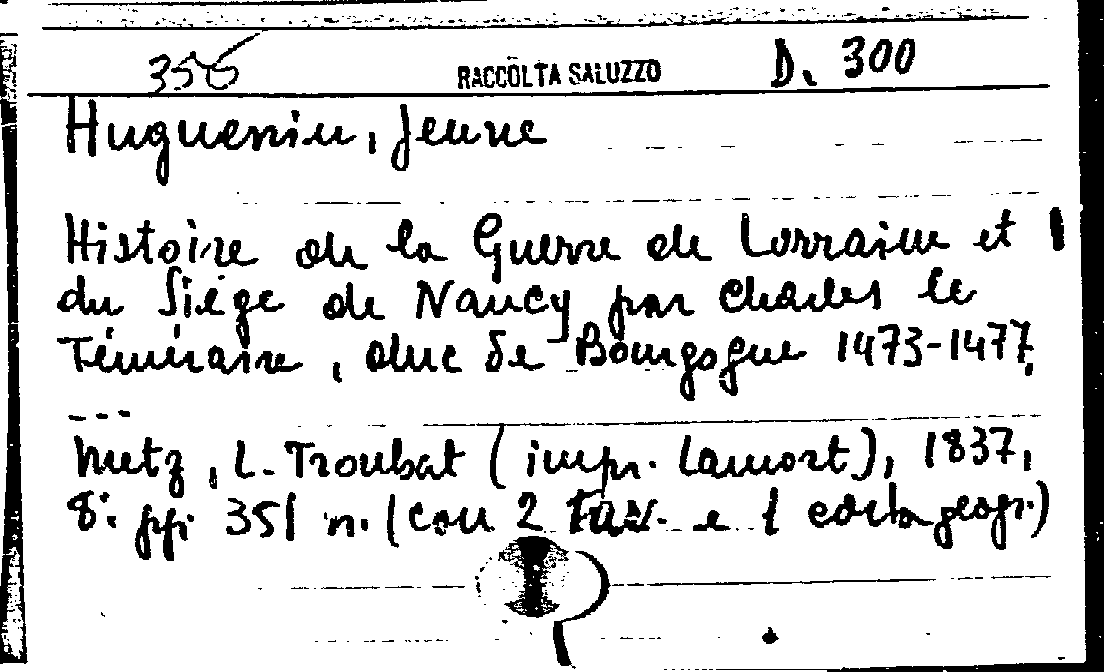 356 RACCOLTA SALUZZO D. 300
Huguenin, Jeune
Histoire de la Guerre de Lorraine et
du Siége de Nancy par Charles le
Téméraire, duc de Bourgogne 1473-1477,
---
Metz, L. Troubat (impr. Lamort), 1837,
8°. pp. 351 n. (con 2 tav. e 1 carta geogr.)